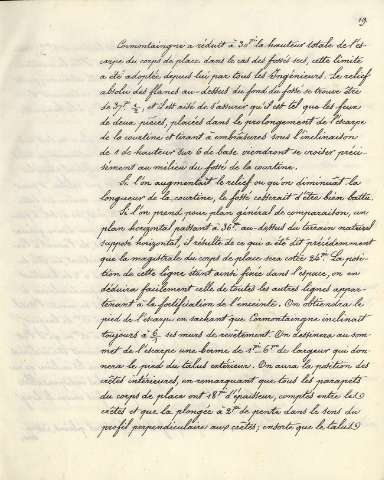 19.
Cormontaingne a réduit à 30ᵖᵈˢ la hauteur totale de l'es-
carpe du corps de place dans le cas des fossés secs, cette limite
a été adoptée depuis lui par tous les Ingénieurs. Le relief
absolu des flancs au-dessus du fond du fossé se trouve être
de et il est aisé de s'assurer qu'il est tel que les feux
de deux pièces, placées dans le prolongement de l'escarpe
de la courtine et tirant à embrasures sous l'inclinaison
de 1 de hauteur sur 6 de base viendront se croiser préci-
sément au milieu du fossé de la courtine.
Si l'on augmentait le relief ou qu'on diminuât la
longueur de la courtine, le fossé cesserait d'être bien battu.
Si l'on prend pour plan général de comparaison, un
plan horizontal passant à 36ᵖᵈˢ au-dessus du terrain naturel
supposé horizontal, il résulte de ce qui a été dit précédemment
que la magistrale du corps de place sera cotée 24ᵖᵈˢ La posi-
tion de cette ligne étant ainsi fixée dans l'espace, on en
déduira facilement celle de toutes les autres lignes appar-
tenant à la fortification de l'enceinte. On obtiendra le
pied de l'escarpe en sachant que Cormontaingne inclinait
toujours à ses murs de revêtement. On dessinera au som-
met de l'escarpe une berme de de largeur qui don-
nera le pied du talus extérieur. On aura la position des
crêtes intérieures, en remarquant que tous les parapets
du corps de place ont 18ᵖᵈˢ d'épaisseur, comptés entre les
crêtes et que la plongée a 2ᵖᵈˢ de pente dans le sens du
profil perpendiculaire aux crêtes; ensorte que le talus